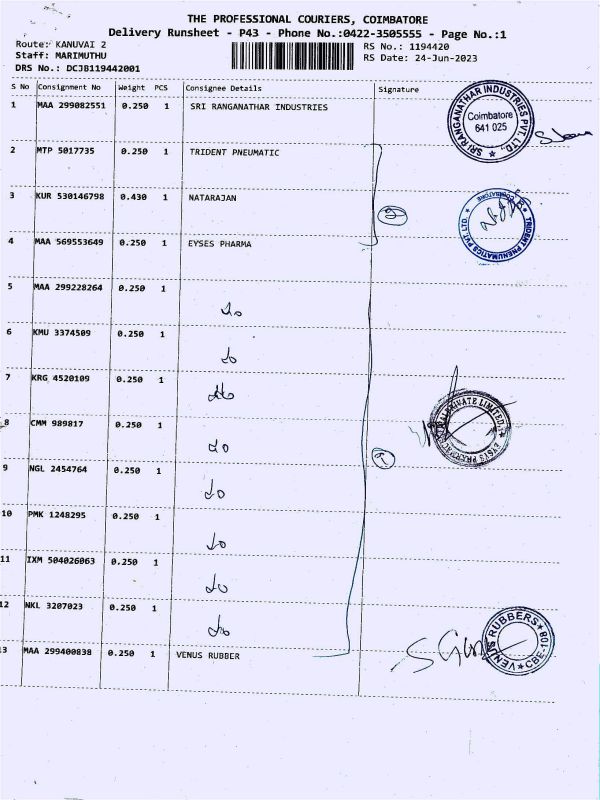 THE PROFESSIONAL COURIERS, COIMBATORE
Delivery Runsheet - P43 - Phone No.:0422-3505555 - Page No.:1
Route: KANUVAI 2
Staff: MARIMUTHU
DRS No.: DCJB119442001
RS No.: 1194420
RS Date: 24-Jun-2023
S No Consignment No Weight PCS Consignee Details Signature
1 MAA 299082551 0.250 1 SRI RANGANATHAR INDUSTRIES
SRI RANGANATHAR INDUSTRIES PVT. LTD.
Coimbatore
641 025
2 MTP 5017735 0.250 1 TRIDENT PNEUMATIC
3 KUR 530146798 0.430 1 NATARAJAN
TRIDENT PNEUMATICS PVT. LTD.
COIMBATORE
4 MAA 569553649 0.250 1 EYSES PHARMA
5 MAA 299228264 0.250 1
do
6 KMU 3374509 0.250 1
do
7 KRG 4520109 0.250 1
do
8 CMM 989817 0.250 1
do
PRIVATE LIMITED
9 NGL 2454764 0.250 1
do
10 PMK 1248295 0.250 1
do
11 IXM 504026063 0.250 1
do
12 NKL 3207023 0.250 1
do
13 MAA 299400838 0.250 1 VENUS RUBBER
VENUS RUBBERS
CBE-108